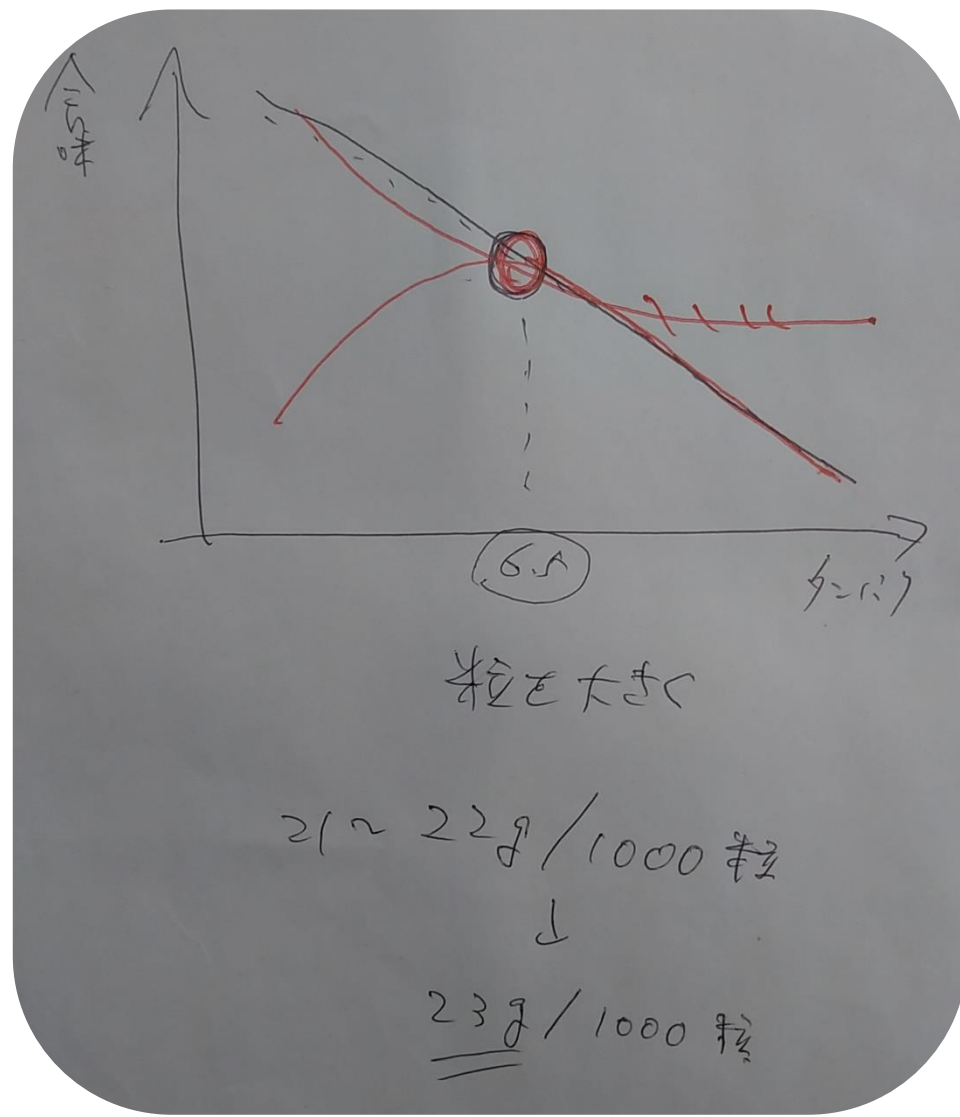 食味
6.5
タンパク
粒を大きく
21~22g/1000粒
↓
23g/1000粒